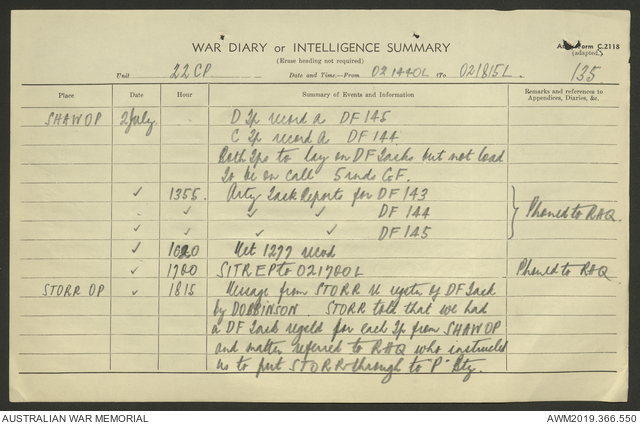 WAR DIARY or INTELLIGENCE SUMMARY
Army Form C.2118
(Erase heading not required)
(adapted)
Unit 22 CP Date and Time—From 021440L To 021815L 135
Place Date Hour Summary of Events and Information Remarks and references to Appendices, Diaries, &c.
SHAW OP 2 July D Tp record a DF 145
C Tp record a DF 144
Both Tps to lay on DF Tasks but not load
To be on call 5 rnds GF.
✓ 1355 Arty Task Reports for DF 143
✓ ✓ ✓ ✓ DF 144
✓ ✓ ✓ ✓ DF 145
Phoned to RHQ.
✓ Met 1277 recd
✓ 1700 SITREP to 021700L Phoned to RHQ
STORR OP ✓ 1815 Message from STORR re regtn of DF Task
by DOBBINSON. STORR told that we had
a DF Task regstd for each Tp from SHAW OP
and matter referred to RHQ who instructed
us to put STORR through to "P" Bty.
AUSTRALIAN WAR MEMORIAL
AWM2019.366.550